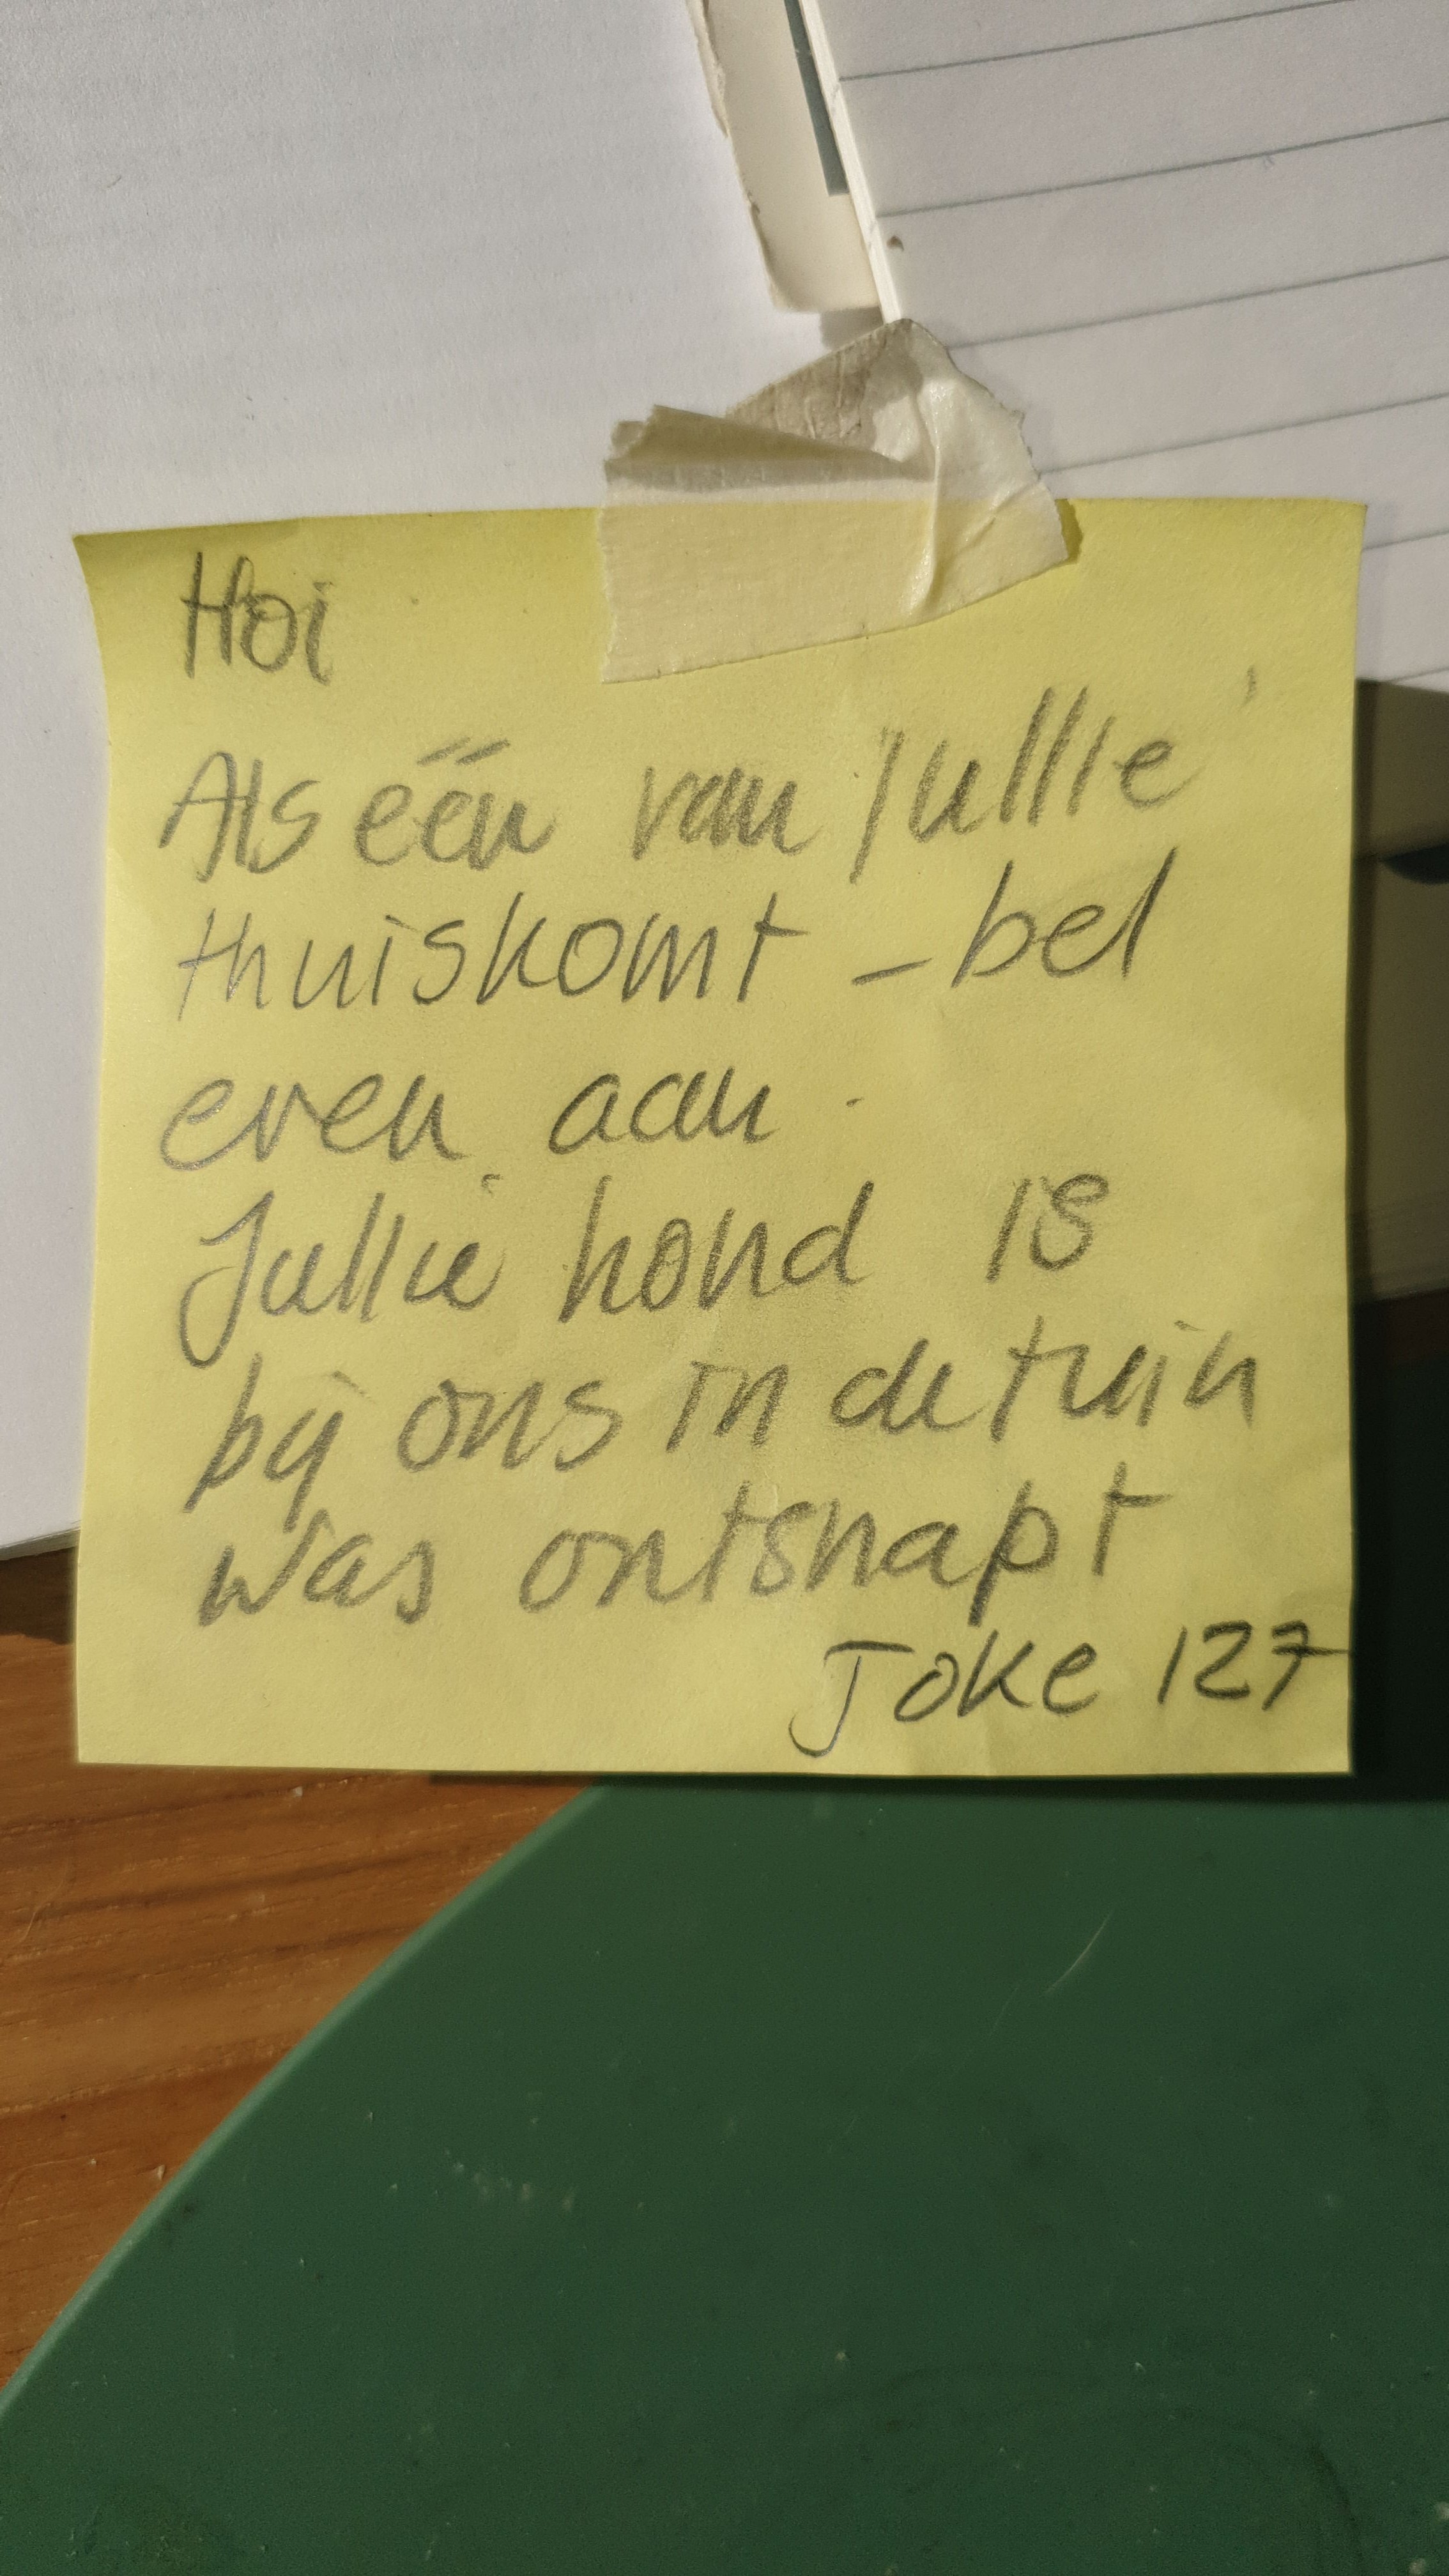 Hoi
Als één van jullie
thuiskomt - bel
even aan.
Jullie hond is
bij ons in de tuin
was ontsnapt
Joke 127